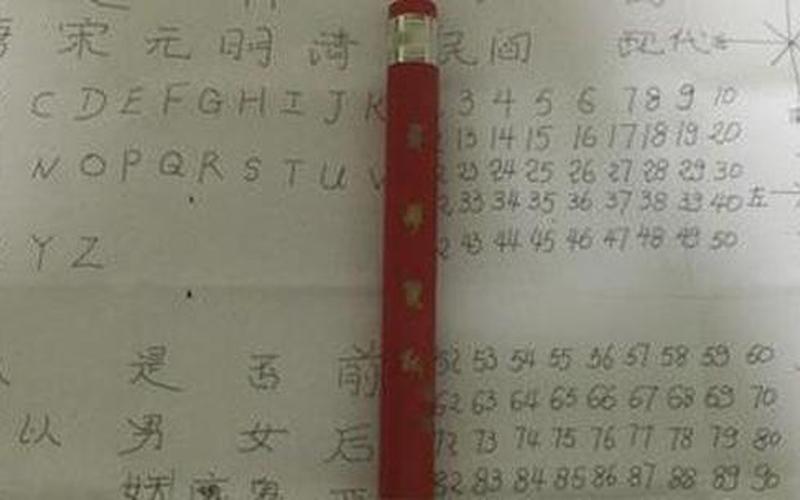 宋 元 明 清 民间 现代
C D E F G H I J K 3 4 5 6 7 8 9 10
13 14 15 16 17 18 19 20
N O P Q R S T U V 23 24 25 26 27 28 29 30
33 34 35 36 37 38 39 40 左
Y Z 43 44 45 46 47 48 49 50
是 否 前 52 53 54 55 56 57 58 59 60
62 63 64 65 66 67 68 69 70
以 男 女 后 72 73 74 75 76 77 78 79 80
82 83 84 85 86 87 88 89 90